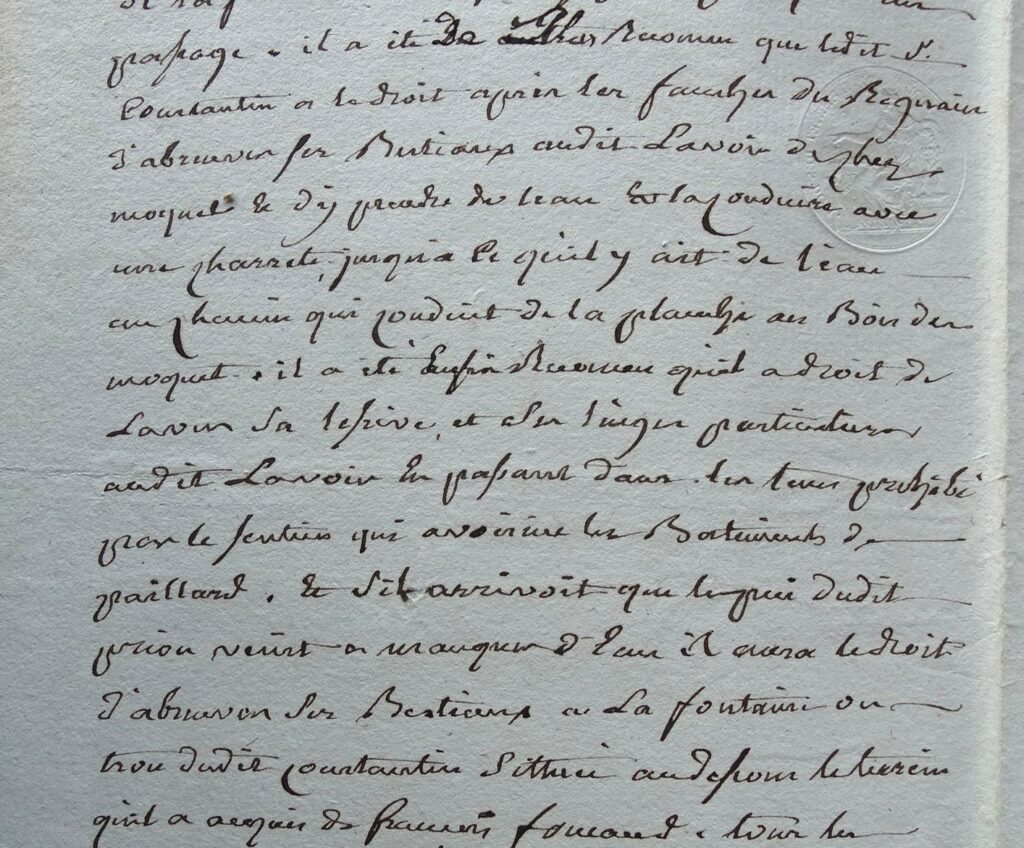 passage. il a été De Reconnu que ledit S.
Constantin a le droit après les fauches du Regain
d'abreuver ses Bestiaux audit Lavoir de chez
moquet & d'y prendre de leau & la conduire avec
une charrete, jusqu'a ce qu'il y ait de l'eau
au chemin qui conduit de la planche au Bois de
moquet. il a été Enfin Reconnu qu'il a droit de
Laver sa lesive, et ses linges particuliers
audit Lavoir En passant dans les tems prohibé
par le sentier qui avoisine les Batiments de
paillard. & s'il arrivoit que le puis dudit
prion veint a manquer d'Eau il aura le droit
d'abreuver ses Bestiaux a La fontaine ou
trou dudit constantin sittué audessous le terrein
qu'il a acquis de françois foucaud. tous les